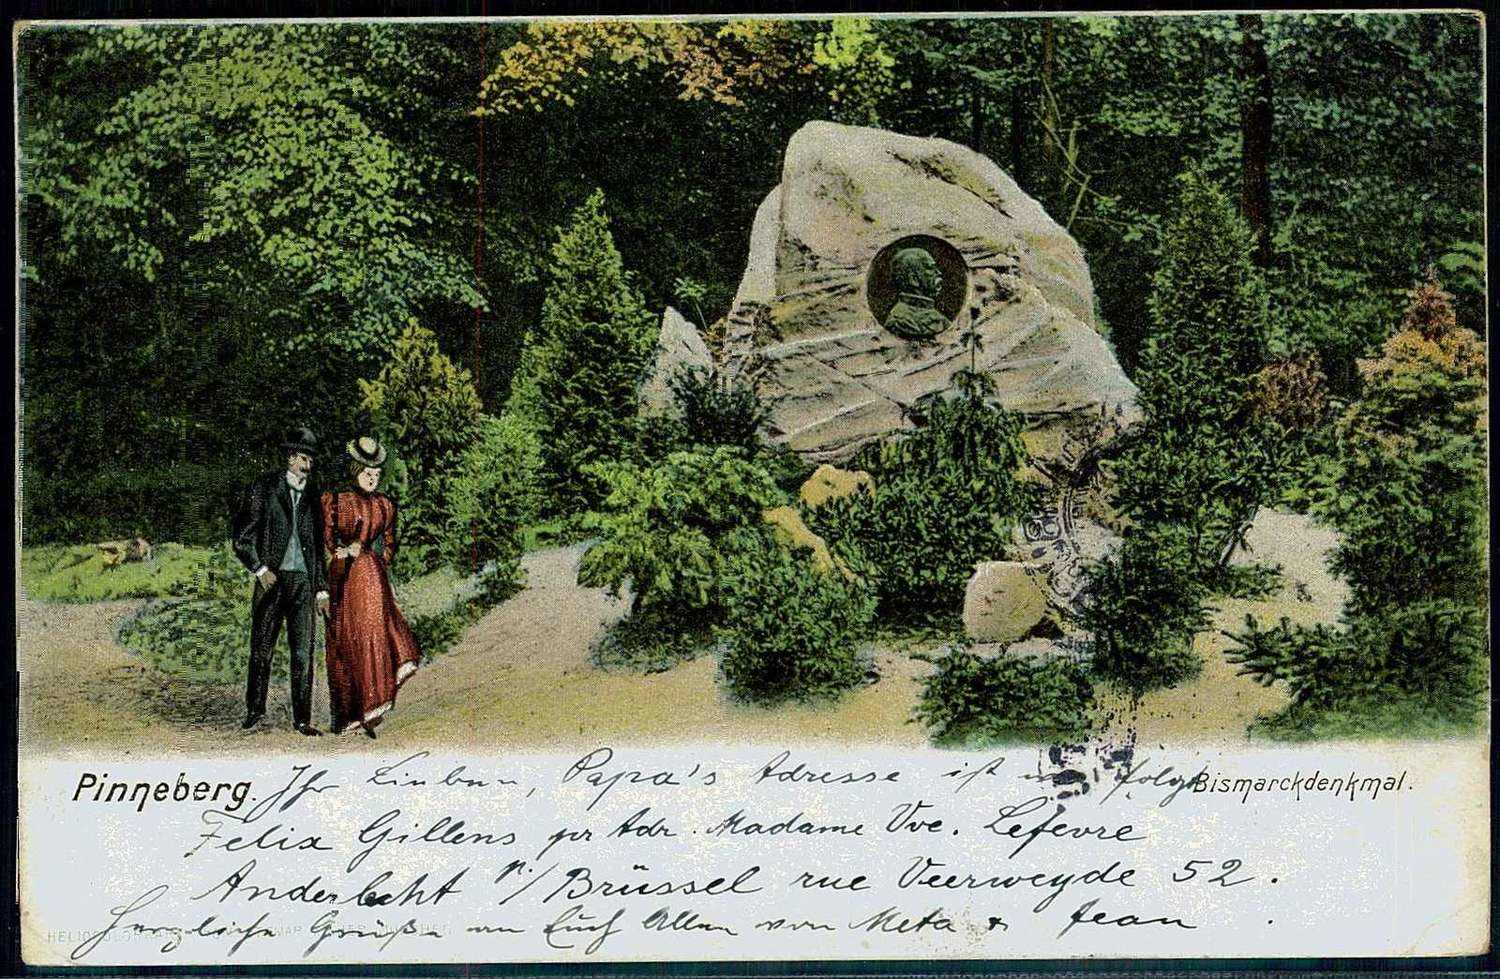 Pinneberg. Ihr Lieben, Papa's Adresse ist wie folgt Bismarckdenkmal.
Felix Gillens pr Adr. Madame Vve. Lefevre
Anderlecht n./Brüssel rue Veerweyde 52.
Herzliche Grüße an Euch Allen von Meta & Jean